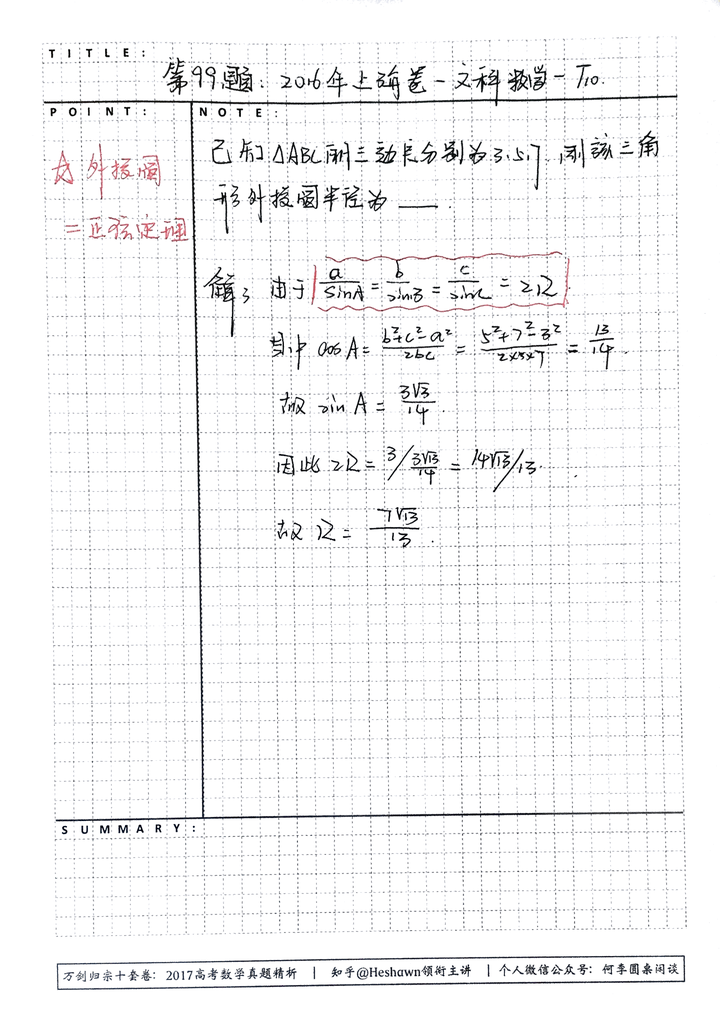 TITLE:
第99题:2016年上海卷-文科数学-T10.
POINT:
NOTE:
已知△ABC的三边长分别为3.5.7,则该三角
形外接圆半径为 ____.
☆外接圆
=正弦定理
解: 由于 a/sinA = b/sinB = c/sinC = 2R
其中 cosA = (b²+c²-a²)/2bc = (5²+7²-3²)/(2×5×7) = 13/14.
故 sinA = 3√3/14.
因此 2R = 3/(3√3/14) = 14√3/3.
故 R = 7√3/3.
SUMMARY:
万剑归宗十套卷:2017高考数学真题精析 | 知乎@Heshawn领衔主讲 | 个人微信公众号:何李圆桌闲谈